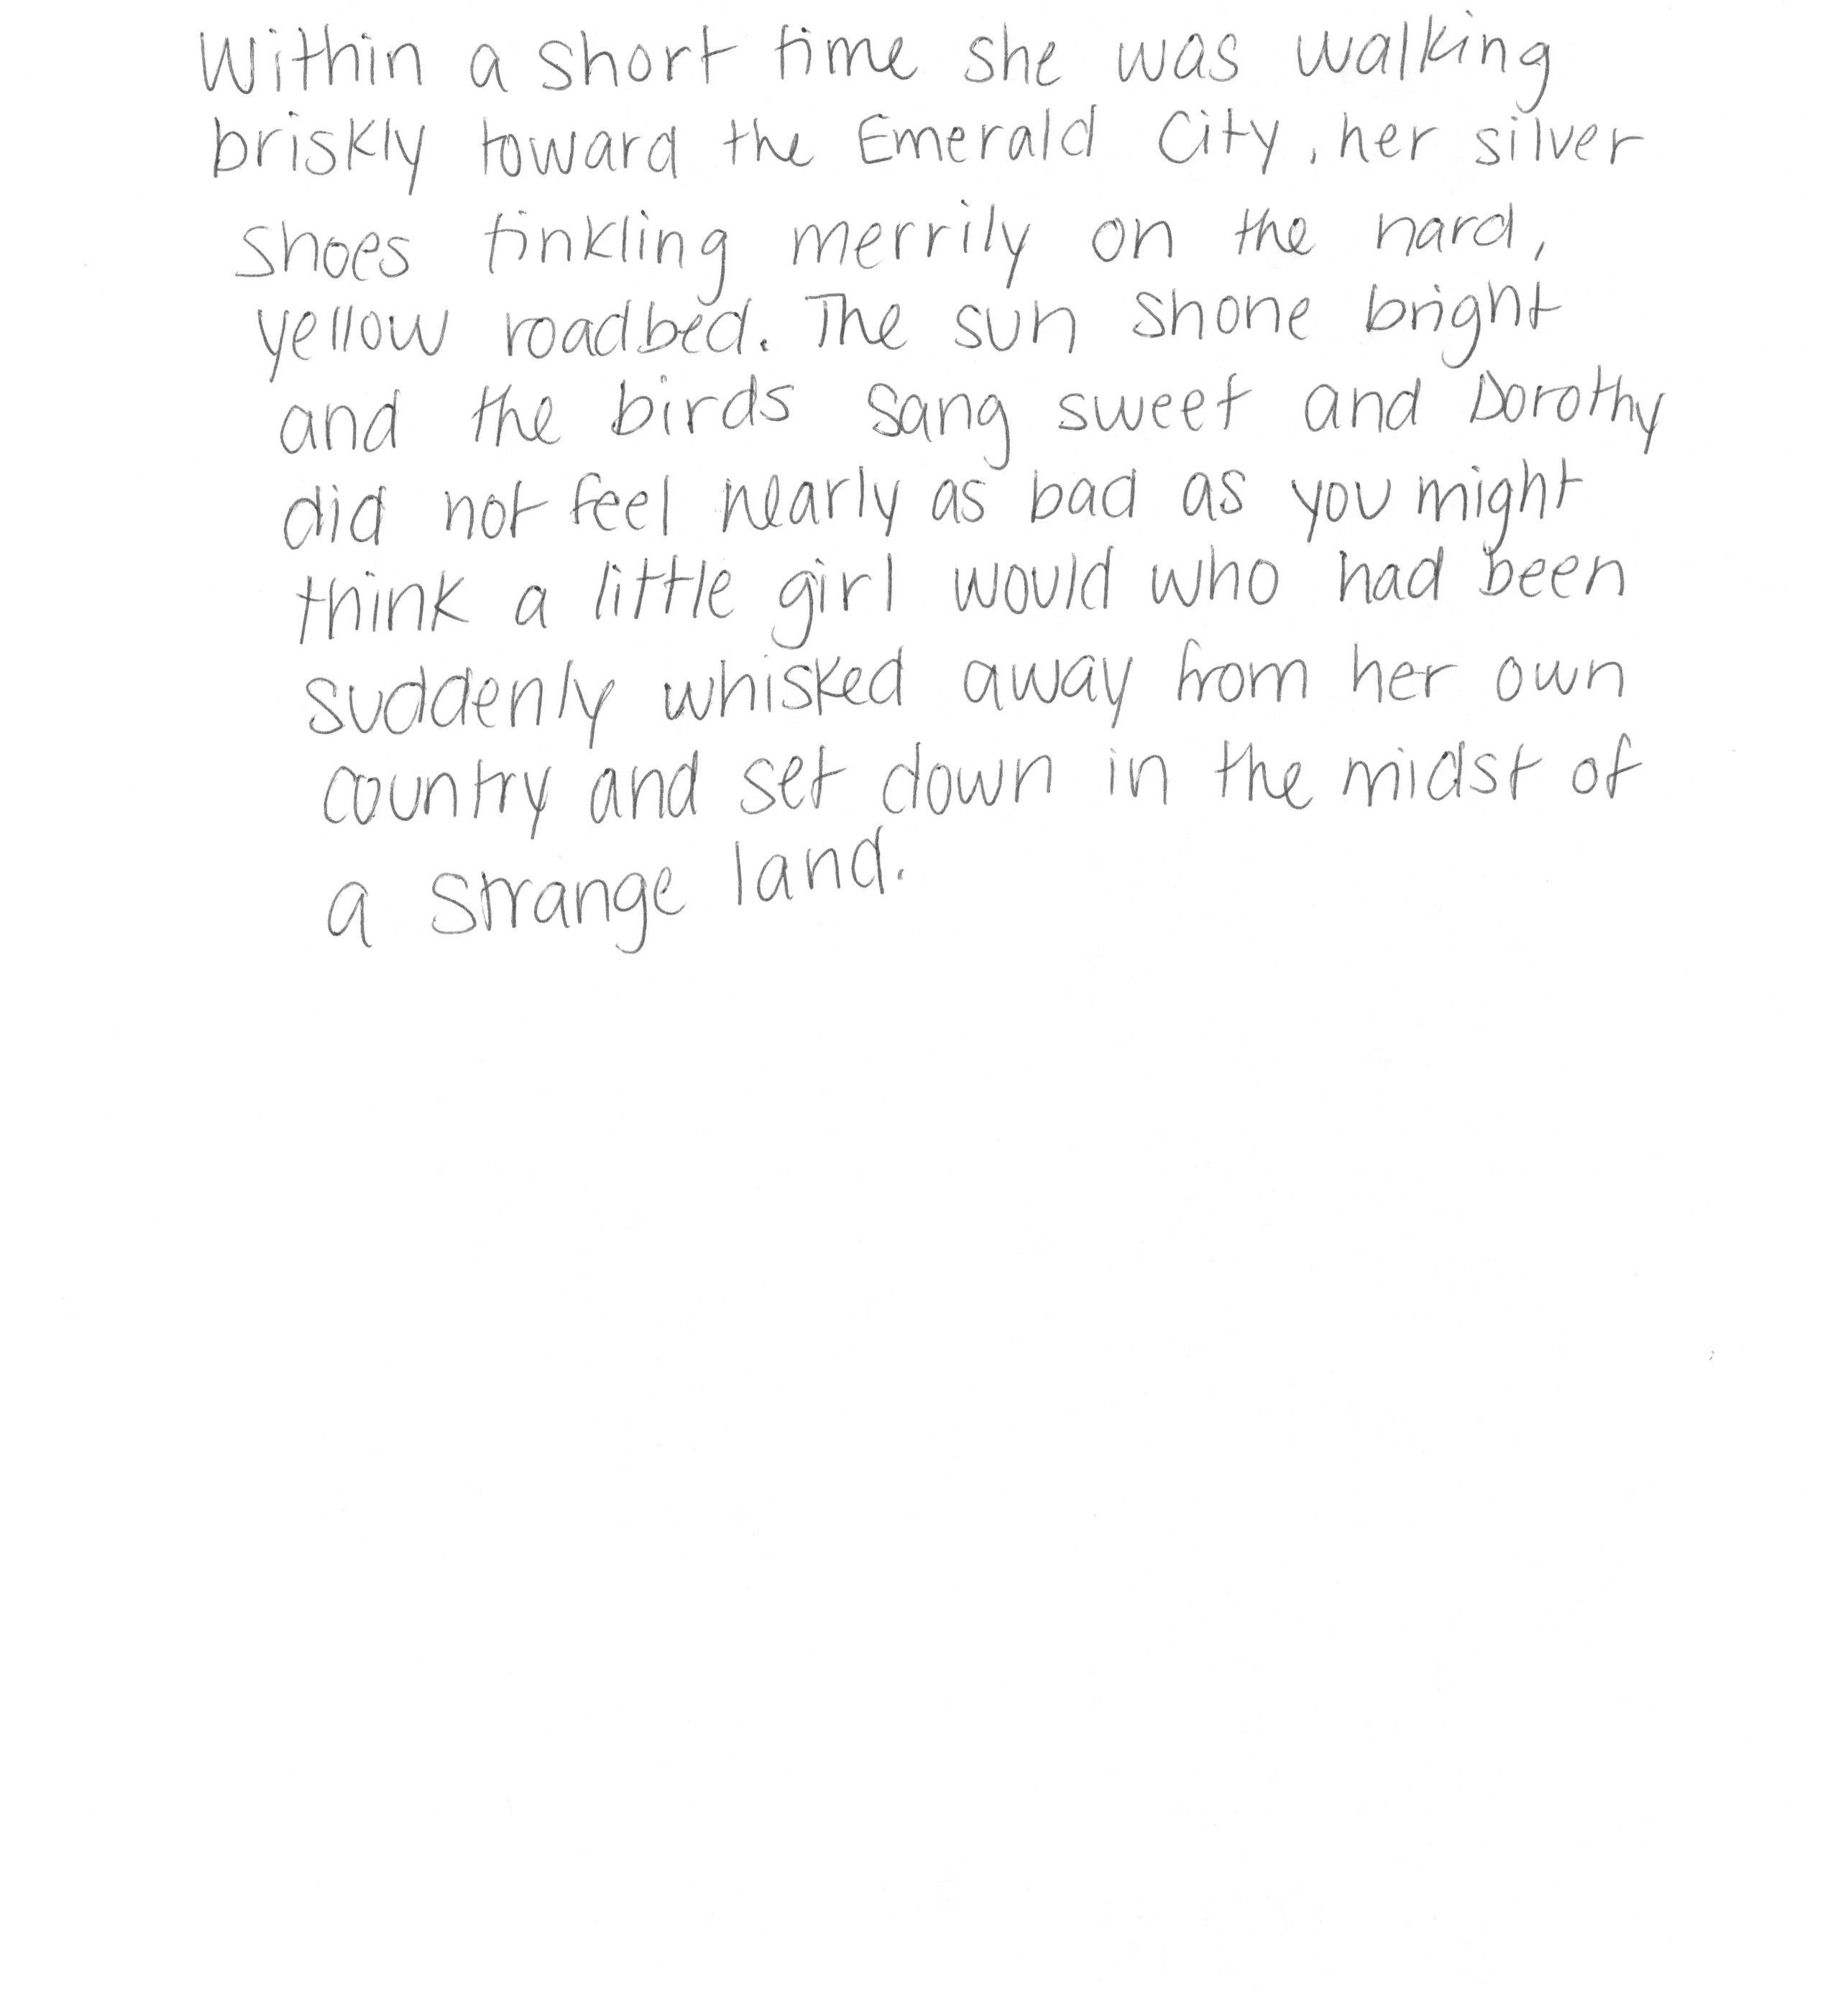 Within a short time she was walking
briskly toward the Emerald City, her silver
shoes tinkling merrily on the hard,
yellow roadbed. The sun shone bright
and the birds sang sweet and Dorothy
did not feel nearly as bad as you might
think a little girl would who had been
suddenly whisked away from her own
country and set down in the midst of
a strange land.